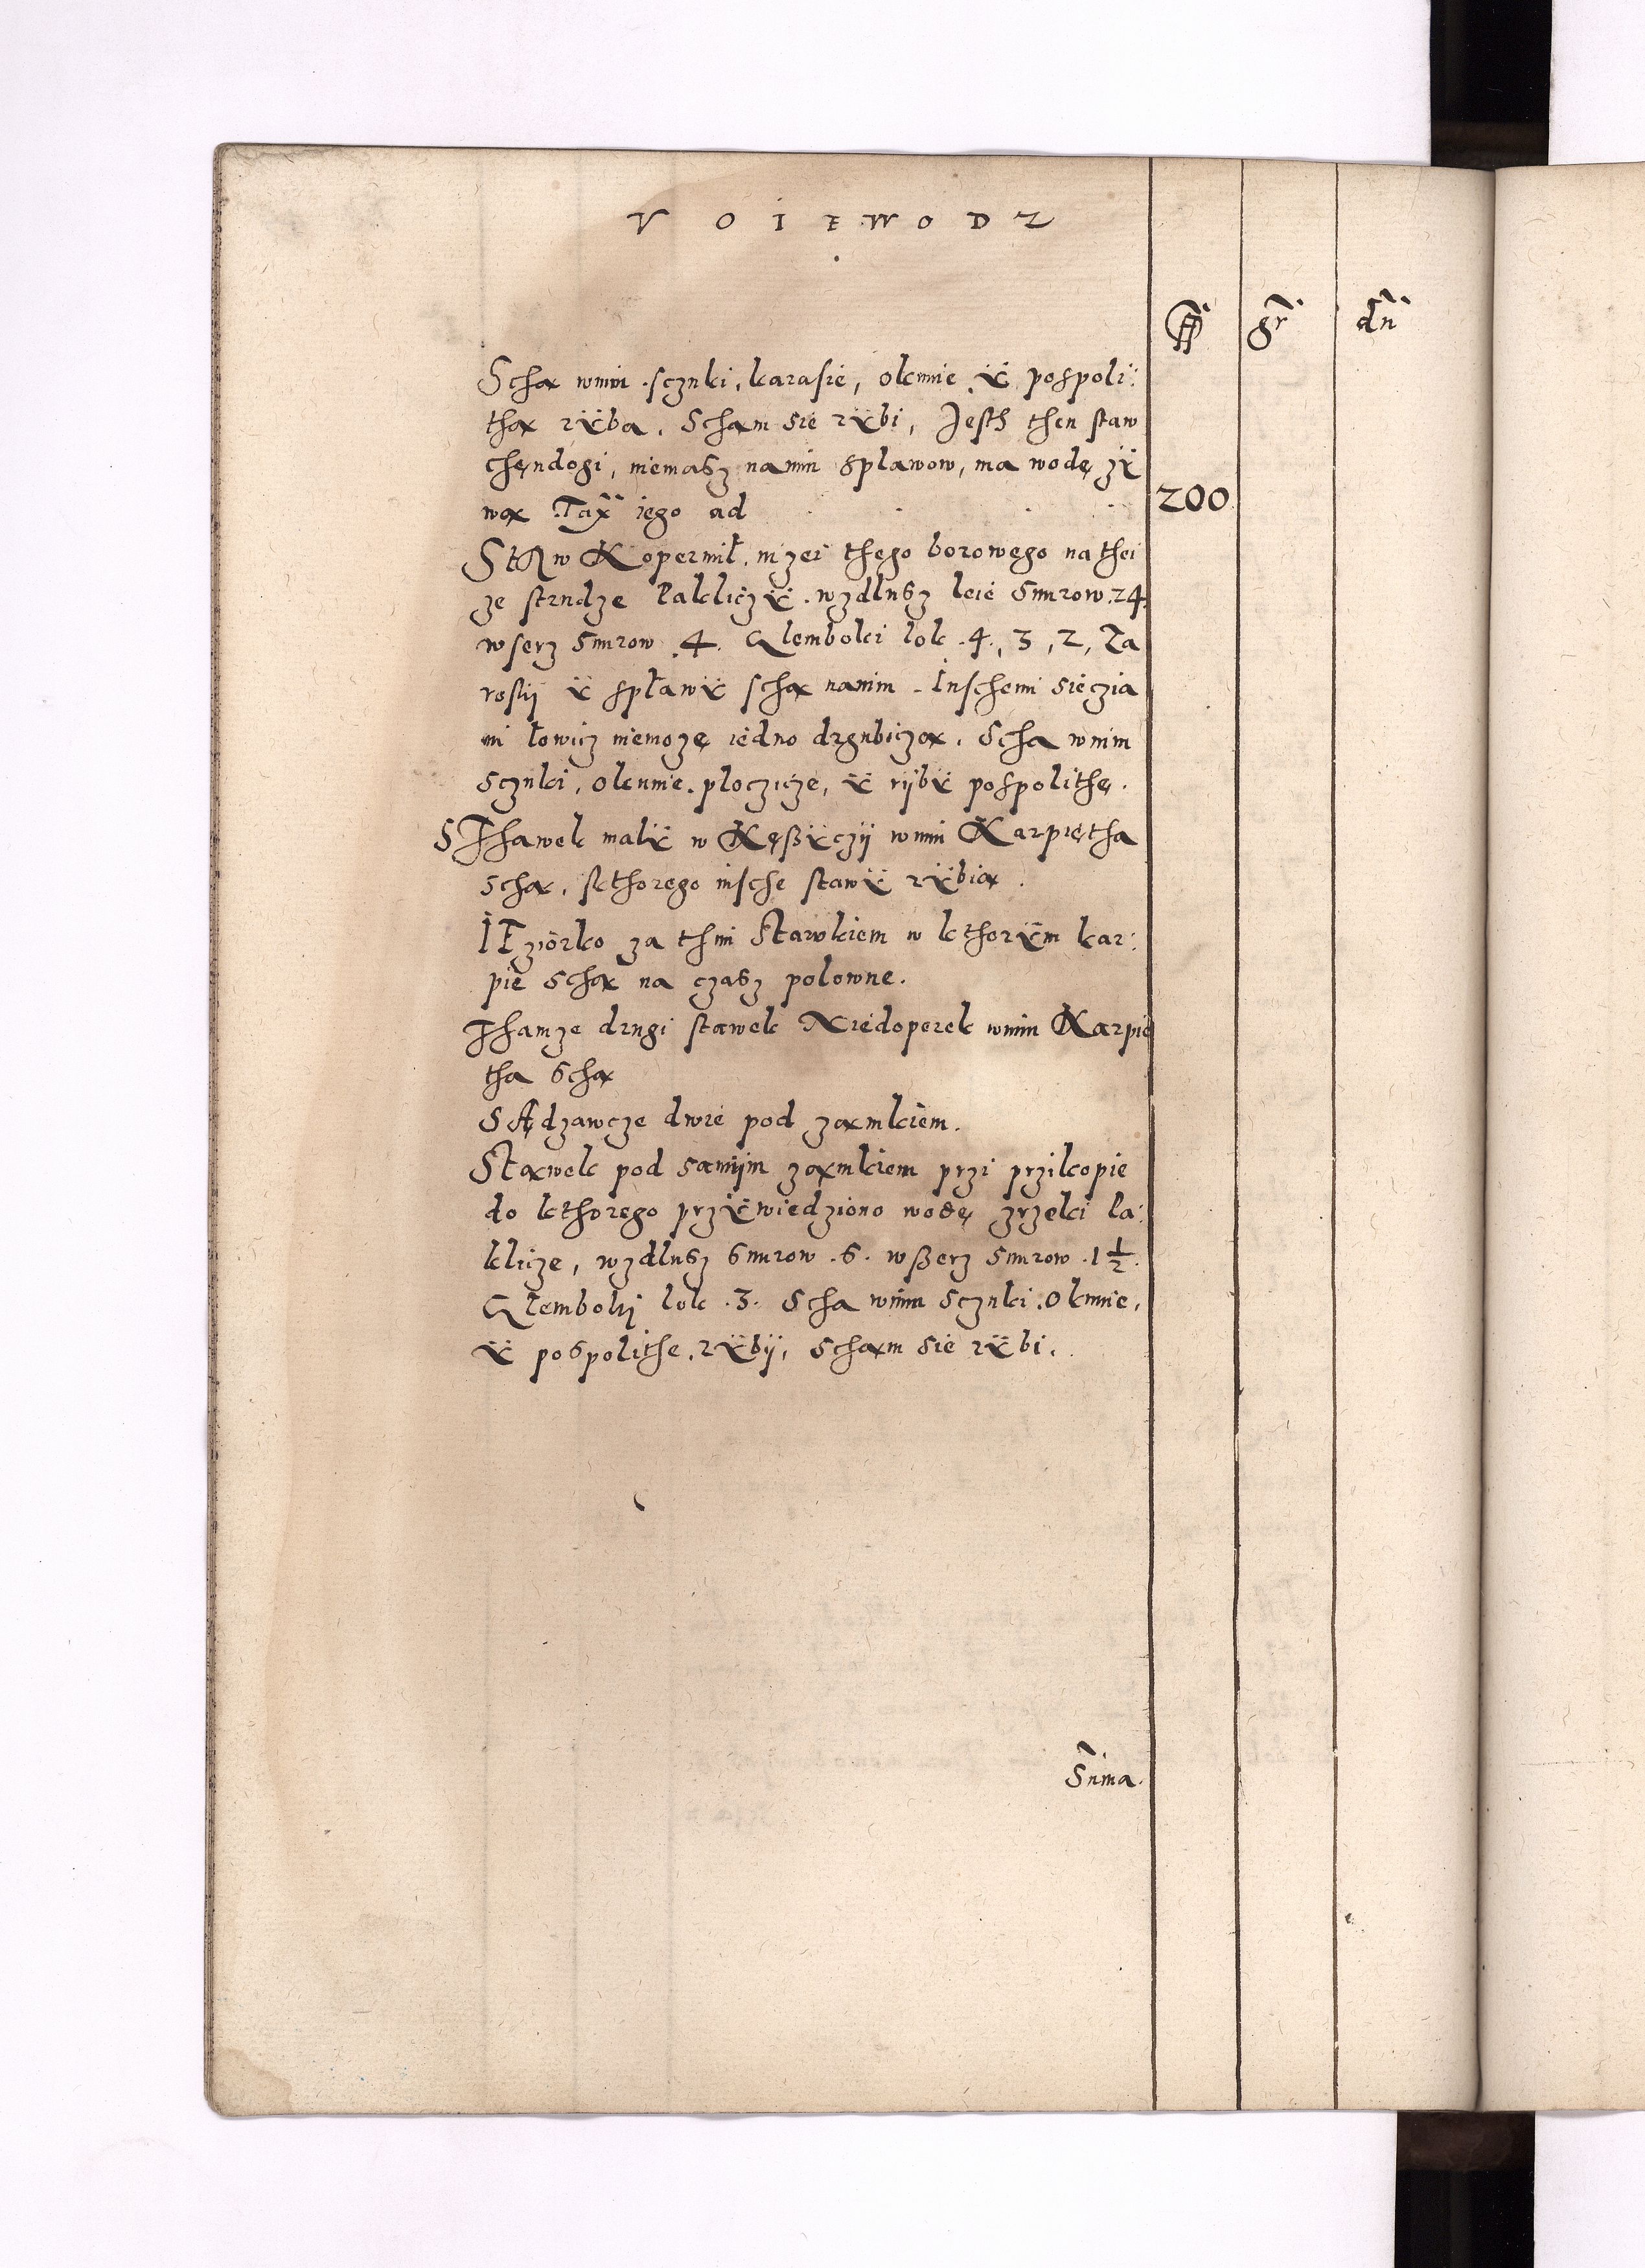 VOIEWODZ
fl gr dn
Scha wnim sczuki, karasie, okunie ÿ pospoli:
tha rÿba. Scham sie rÿbi, Jesth then staw
chendogi, niemasz nanim splawow, ma wodę zÿ
wa Tax iego ad 200
StAw Kopernik nizei thego borowego na thei
ze strudze Lakliczÿ. wzdlusz leie snurow .24.
wserz snurow .4. Glemboki lok .4., 3, 2, Za
rosly ÿ spławÿ scha nanim. Inschemi siecia
mi łowicz niemozę iedno drgubicza. Scha wnim
sczuki, okunie, ploczicze, ÿ rÿbÿ pospolithe.
SThawek malÿ w Kęßÿczÿ wnim Karpiętha
scha, skthorego insche stawÿ rÿbia.
IEziorko za thim Stawkiem w kthorÿm kar:
pie scha na czasz polowne.
Thamze drugi stawek Niedoperek wnim Karpie
tha scha
SAdzawcze dwie pod zamkiem.
Stawek pod samÿm zamkiem przi przikopie
do kthorego przÿwiedziono wodę zrzeki La:
klicze, wzdlusz snurow .6. wßerz snurow .1 1/2.
Glemboki lok .3. Scha wnim sczuki, okunie,
ÿ pospolithe rÿbÿ, scham sie rÿbi.
Suma.